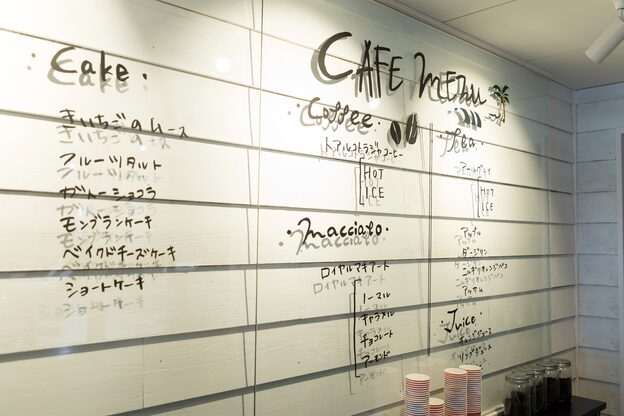 CAFE MENU
Cake
きいちごのムース
フルーツタルト
ガトーショコラ
モンブランケーキ
ベイクドチーズケーキ
ショートケーキ
Coffee
トアルコトラジャコーヒー
HOT
ICE
macciato
ロイヤルマキアート
ノーマル
キャラメル
チョコレート
アーモンド
Tea
アールグレイ
HOT
ICE
アップル
ダージリン
アッサム
Juice
オレンジジュース
リンゴジュース